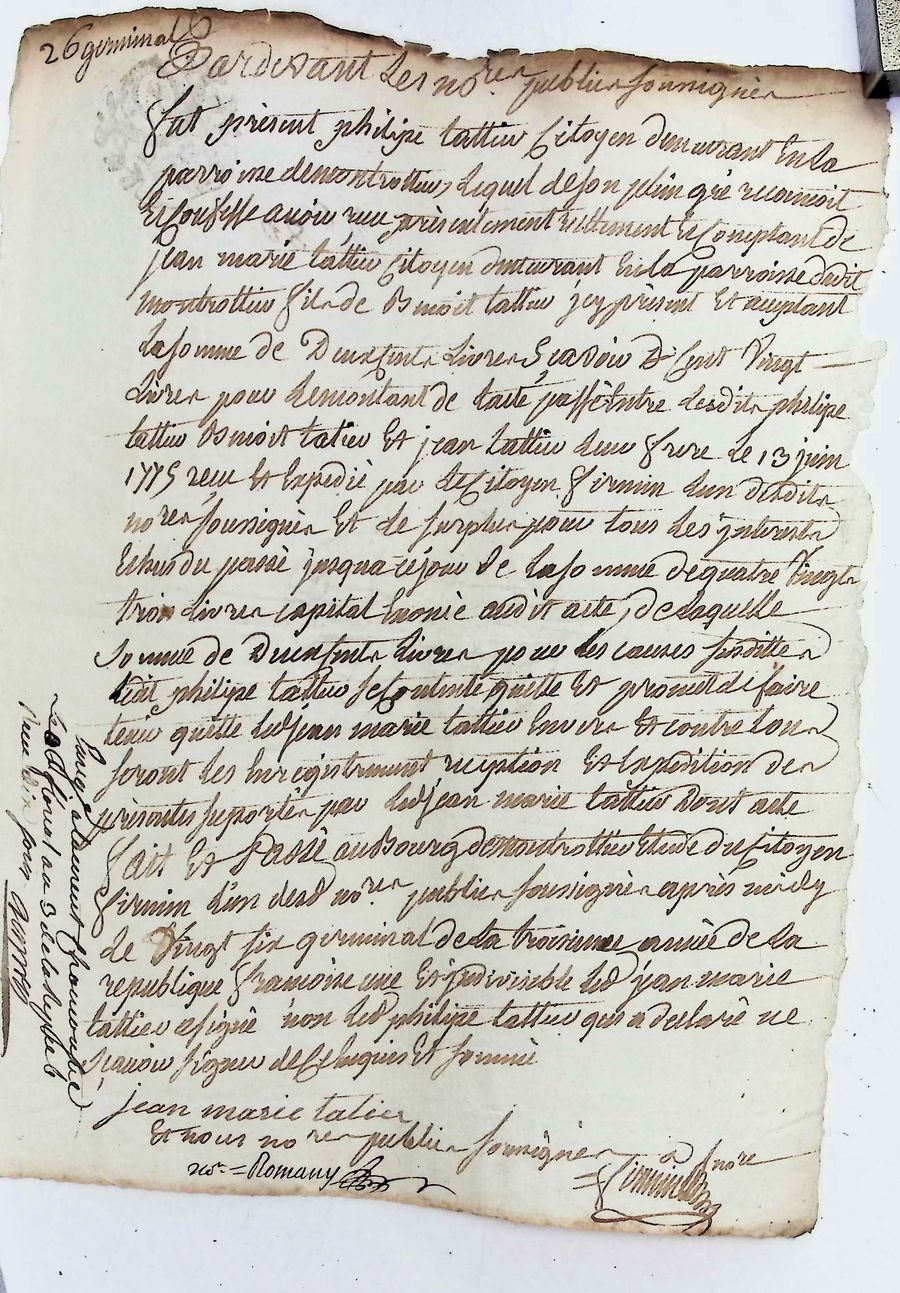 26 germinal
Pardevant Les no.res publics soussignés
fut présent philipe tattieu Citoyen demeurant En la
parroisse de montrottieu, Lequel de son plein gré reconnoit
Et Confesse avoir reçu présentement réellement Et Comptant de
jean marie tattieu Citoyen demeurant En la parroisse dudit
montrottieu fils de Benoit tattieu jcy présent Et aceptant
La somme de Deux Cents Livres Sçavoir De Cent Vingt
Livres pour Le montant de Lacte passé Entre Lesdits philipe
tattieu Benoit tatieu Et jean tattieu frere Le 13 juin
1775 reçu Et Expedié par Le Citoyen firmin Lun desdits
no.res soussignés Et Le surplus pour tous Les jnterets
Echus du passé jusqua ce jour De La somme de quatre Vingts
trois Livres capital Enoncé audit acte, De Laquelle
Somme de Deux Cents Livres pour Les causes susdittes
Ledit philipe tattieu se Contente quitte Et promet de faire
tenir quitte Led jean marie tattieu Envers Et contre tous
seront Les Enregistrement reception Et Expedition des
présentes suportés par Led jean marie tattieu Dont acte
fait Et Passé au Bourg de montrottieu Etude du Citoyen
firmin L'un desd no.res publics soussignés après midy
Le Vingt six germinal de La troisieme année de La
republique francoise une Et jndivisible Led jean marie
tattieu a signé non Led philipe tattieu qui a declaré ne
sçavoir signer de Ce Enquis Et sommé
jean marie tatieu
Et nous no.res publics soussignés
no.re = Romany
firmin no.re
Enreg. a Laurent
Le floreal an 3 de la rep
Reçu dix sous